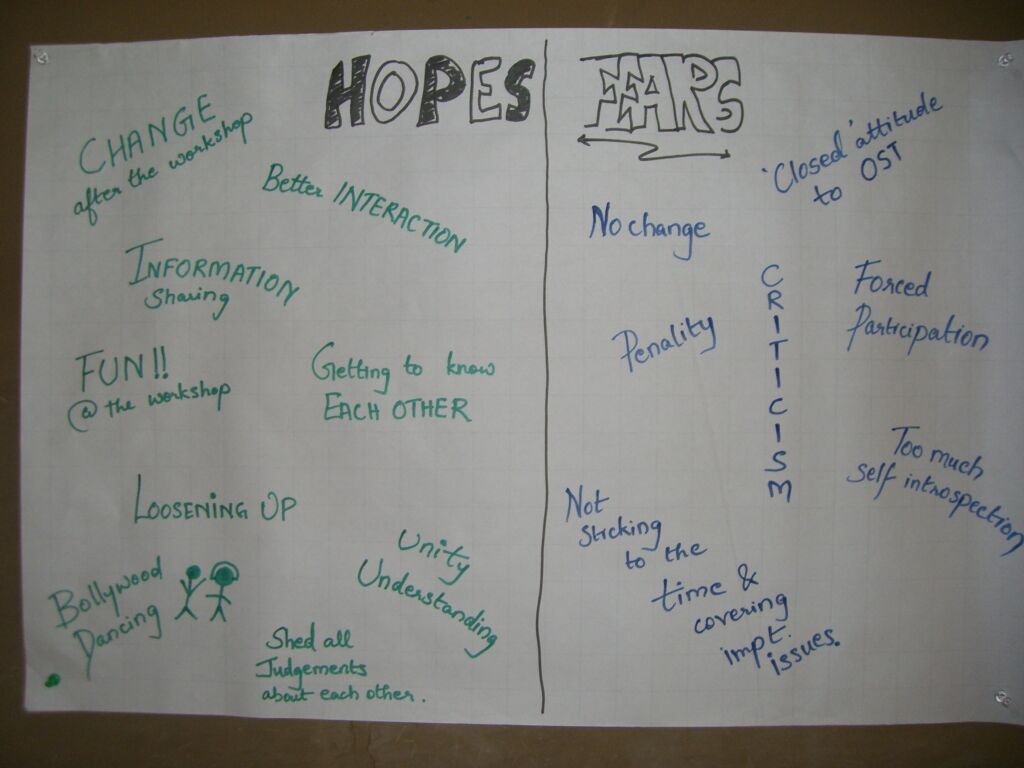 HOPES
CHANGE
after the workshop
Better INTERACTION
INFORMATION
Sharing
FUN!!
@ the workshop
Getting to know
EACH OTHER
LOOSENING UP
Unity
Understanding
Bollywood
Dancing
Shed all
Judgements
about each other.
FEARS
'Closed' attitude
to OST
No change
CRITICISM
Forced
Participation
Penality
Too much
Self introspection
Not
Sticking
to the
time &
covering
impt.
issues.